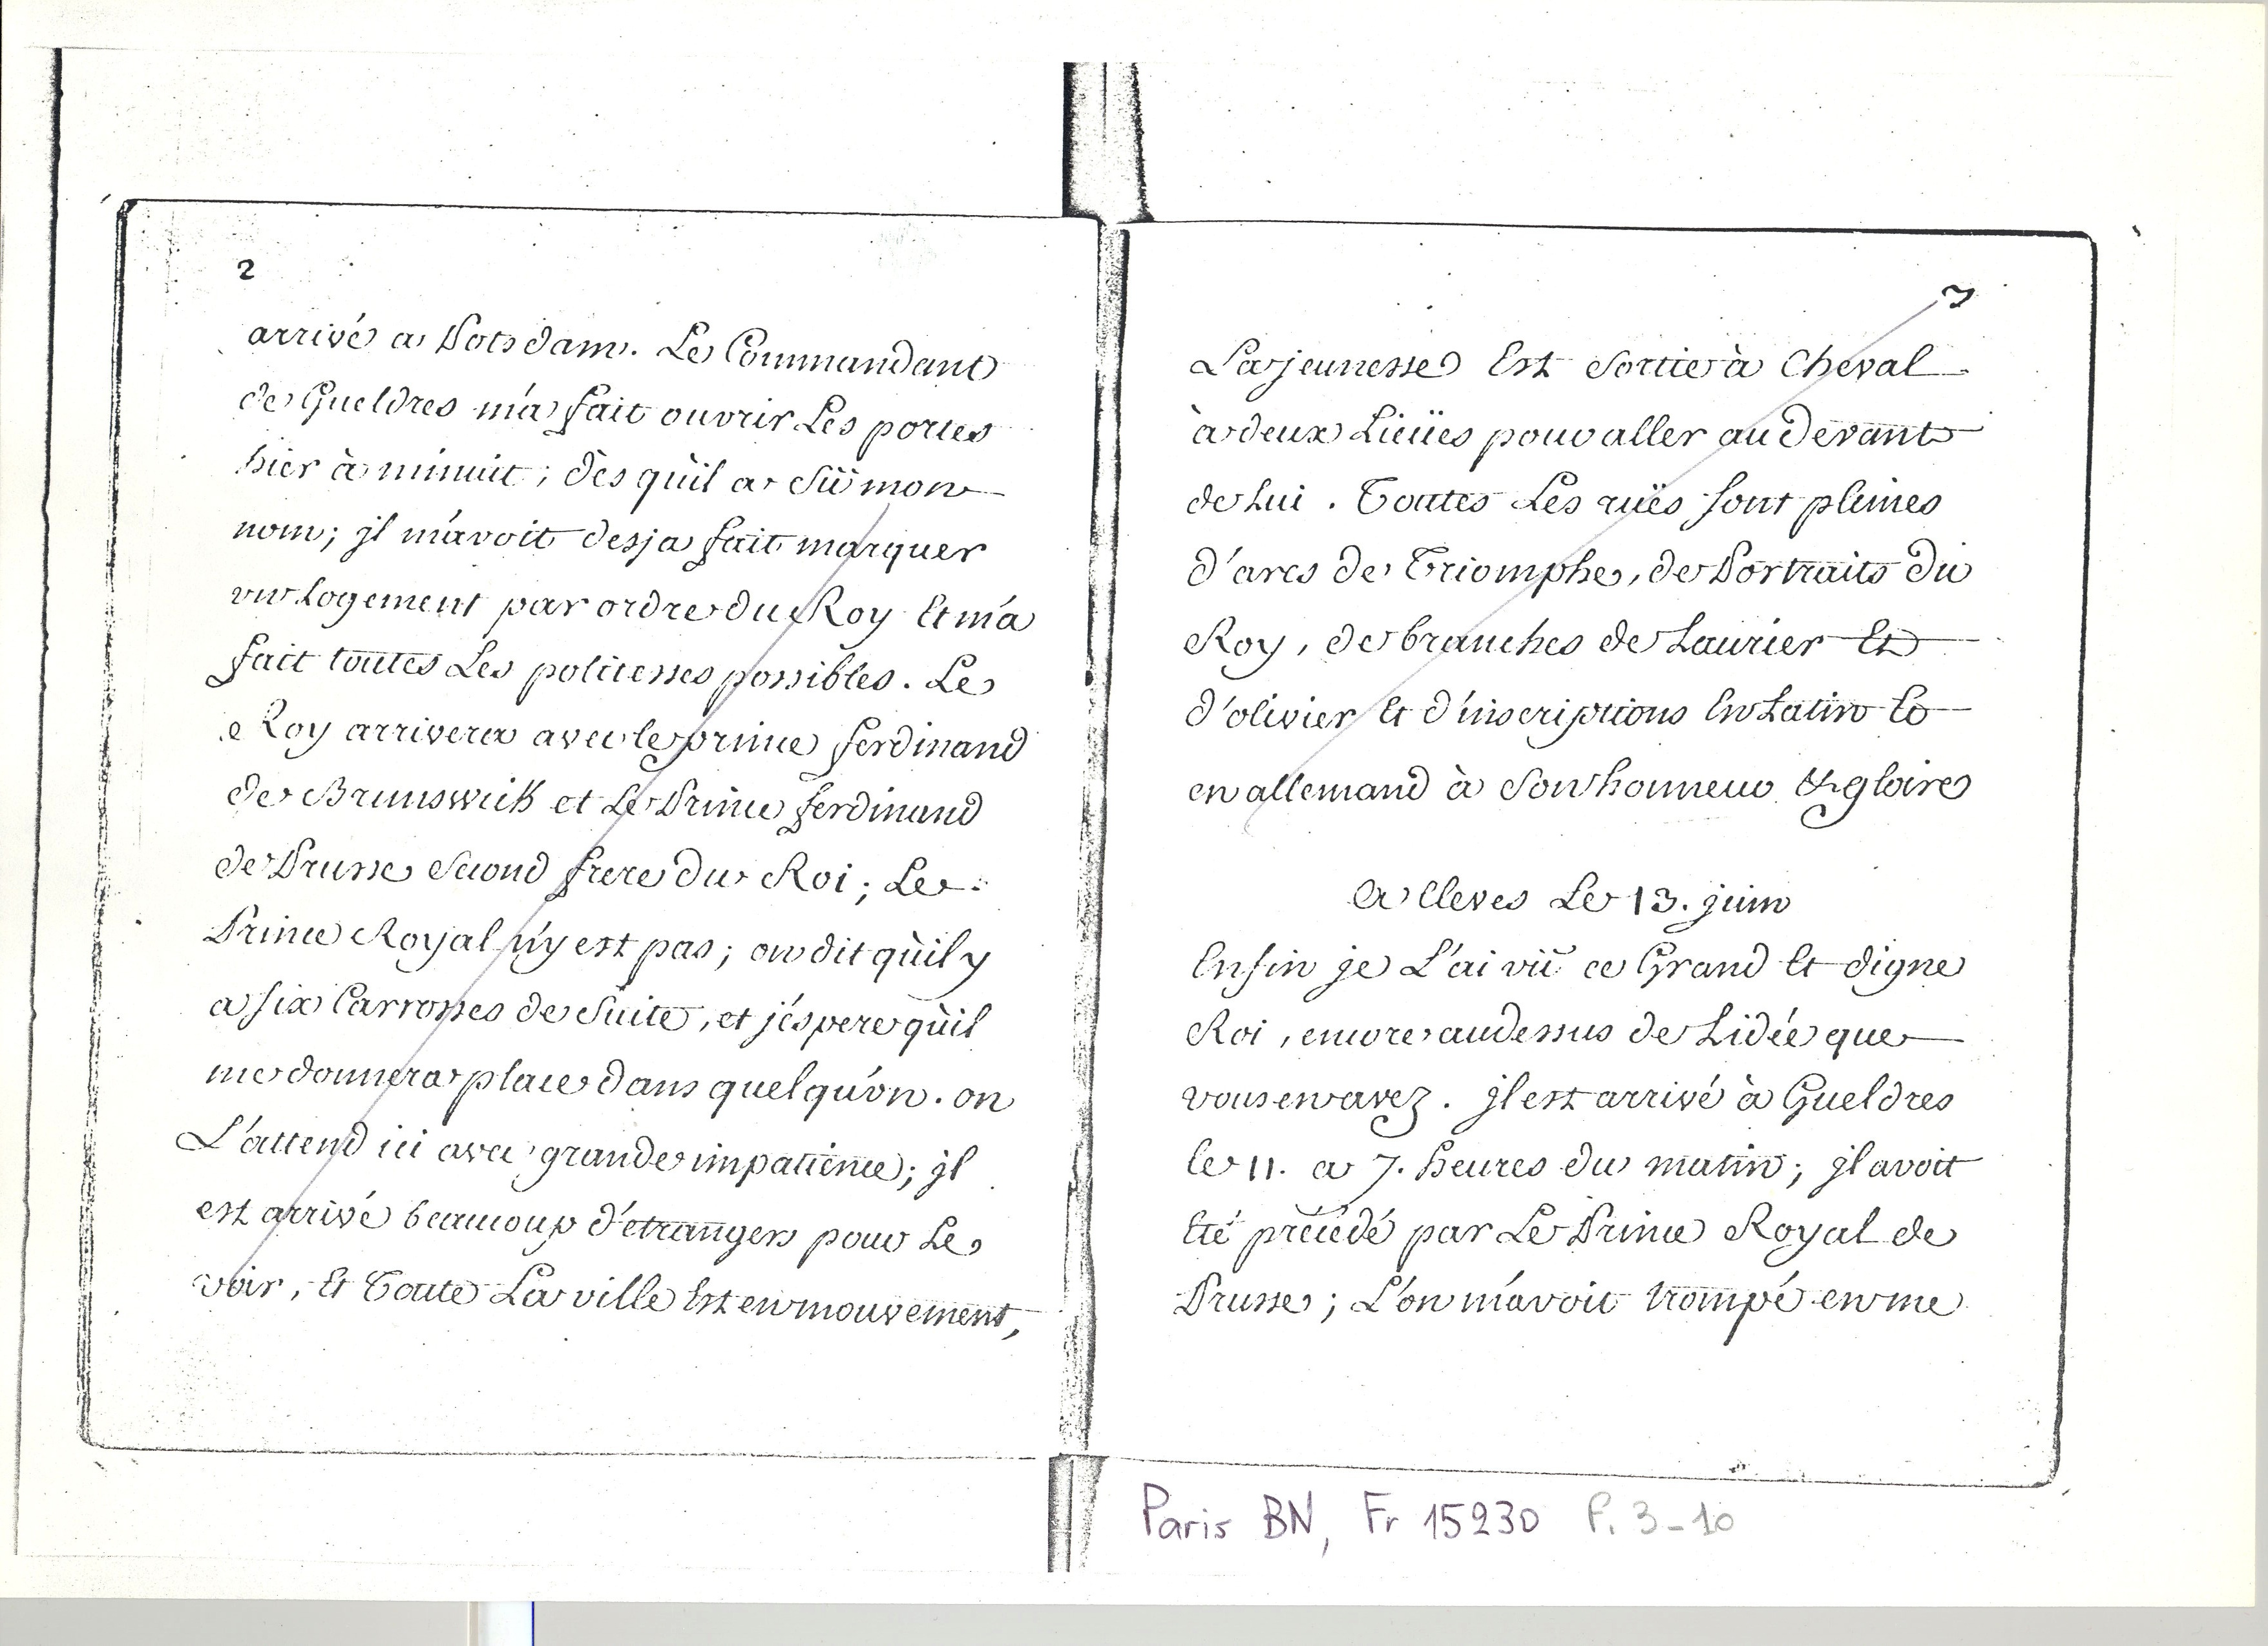 2
arrivé a Potsdam. Le Commandant
de Gueldres m'a fait ouvrir Les portes
hier à minuit, dès qu'il a sü mon
nom; jl m'avoit desja fait marquer
un Logement par ordre du Roy Et m'a
fait toutes Les politesses possibles. Le
Roy arrivera avec le prince ferdinand
de Brunswick et Le Prince ferdinand
de Prusse second frere du Roi; Le
Prince Royal n'y est pas; on dit qu'il y
a six Carrosses de suite, et j'éspere qu'il
me donnera place dans quelqu'un. on
L'attend ici avec grande impatience; jl
est arrivé beaucoup d'étrangers pour Le
voir, Et Toute La ville Est en mouvement,
3
La jeunesse Est sortie à Cheval
à deux Lieües pour aller au devant
de Lui. Toutes Les rües sont pleines
d'arcs de Triomphe, de Portraits du
Roy, de branches de Laurier Et
d'olivier Et d'inscriptions En Latin Et
en allemand à son honneur & gloire
A Cleves Le 13. juin
Enfin je L'ai vü ce Grand Et digne
Roi, encore audessus de L'idée que
vous en avez. jl est arrivé à Gueldres
le 11. a 7. heures du matin; jl avoit
Eté précédé par Le Prince Royal de
Prusse; L'on m'avoit trompé en me
Paris BN, Fr 15230 P. 3-10